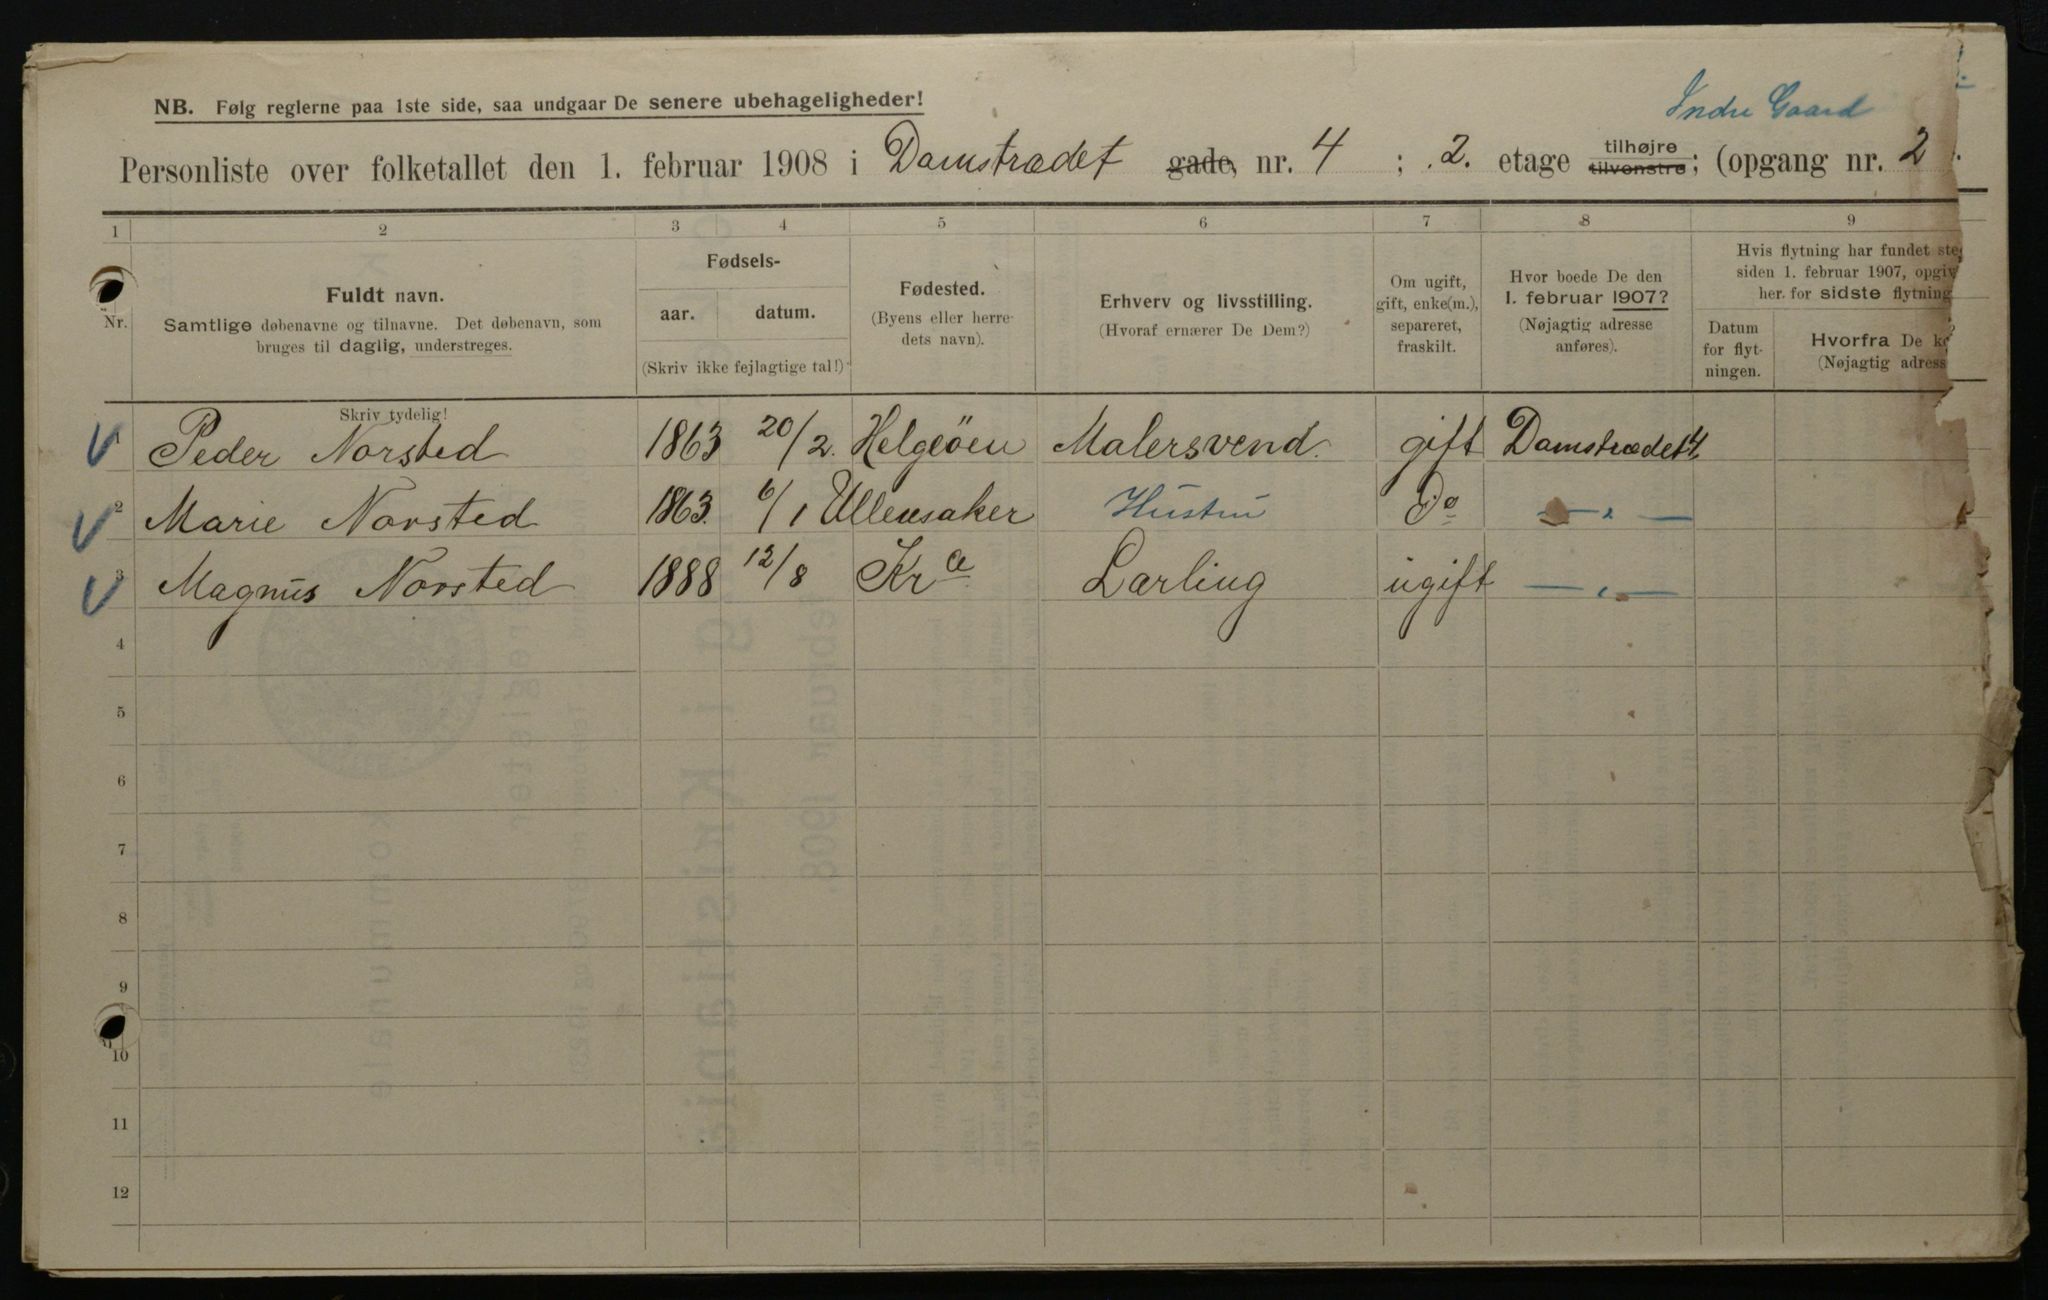 Indre Gaard
NB. Følg reglerne paa 1ste side, saa undgaar De senere ubehageligheder!
Personliste over folketallet den 1. februar 1908 i Damstrædet gade, nr. 4 ; 2. etage tilhøjre tilvenstre; (opgang nr. 2
1 2 3 4 5 6 7 8 9
Nr.
Fuldt navn.
Samtlige døbenavne og tilnavne. Det døbenavn, som
bruges til daglig, understreges.
Skriv tydelig!
Fødsels-
aar. datum.
(Skriv ikke fejlagtige tal!)
Fødested.
(Byens eller herre-
dets navn).
Erhverv og livsstilling.
(Hvoraf ernærer De Dem?)
Om ugift,
gift, enke(m.),
separeret,
fraskilt.
Hvor boede De den
1. februar 1907?
(Nøjagtig adresse
anføres).
Hvis flytning har fundet ste
siden 1. februar 1907, opgiv
her. for sidste flytning
Datum
for flyt-
ningen.
Hvorfra De k
(Nøjagtig adress
1 Peder Norsted 1863 20/2. Helgeöen Malersvend. gift Damstrædet 4
2 Marie Norsted 1863. 6/1 Ullensaker Hustru Do — „ —
3 Magnus Norsted 1888 12/8 Kra Lærling ugift — „ —
4
5
6
7
8
9
10
11
12